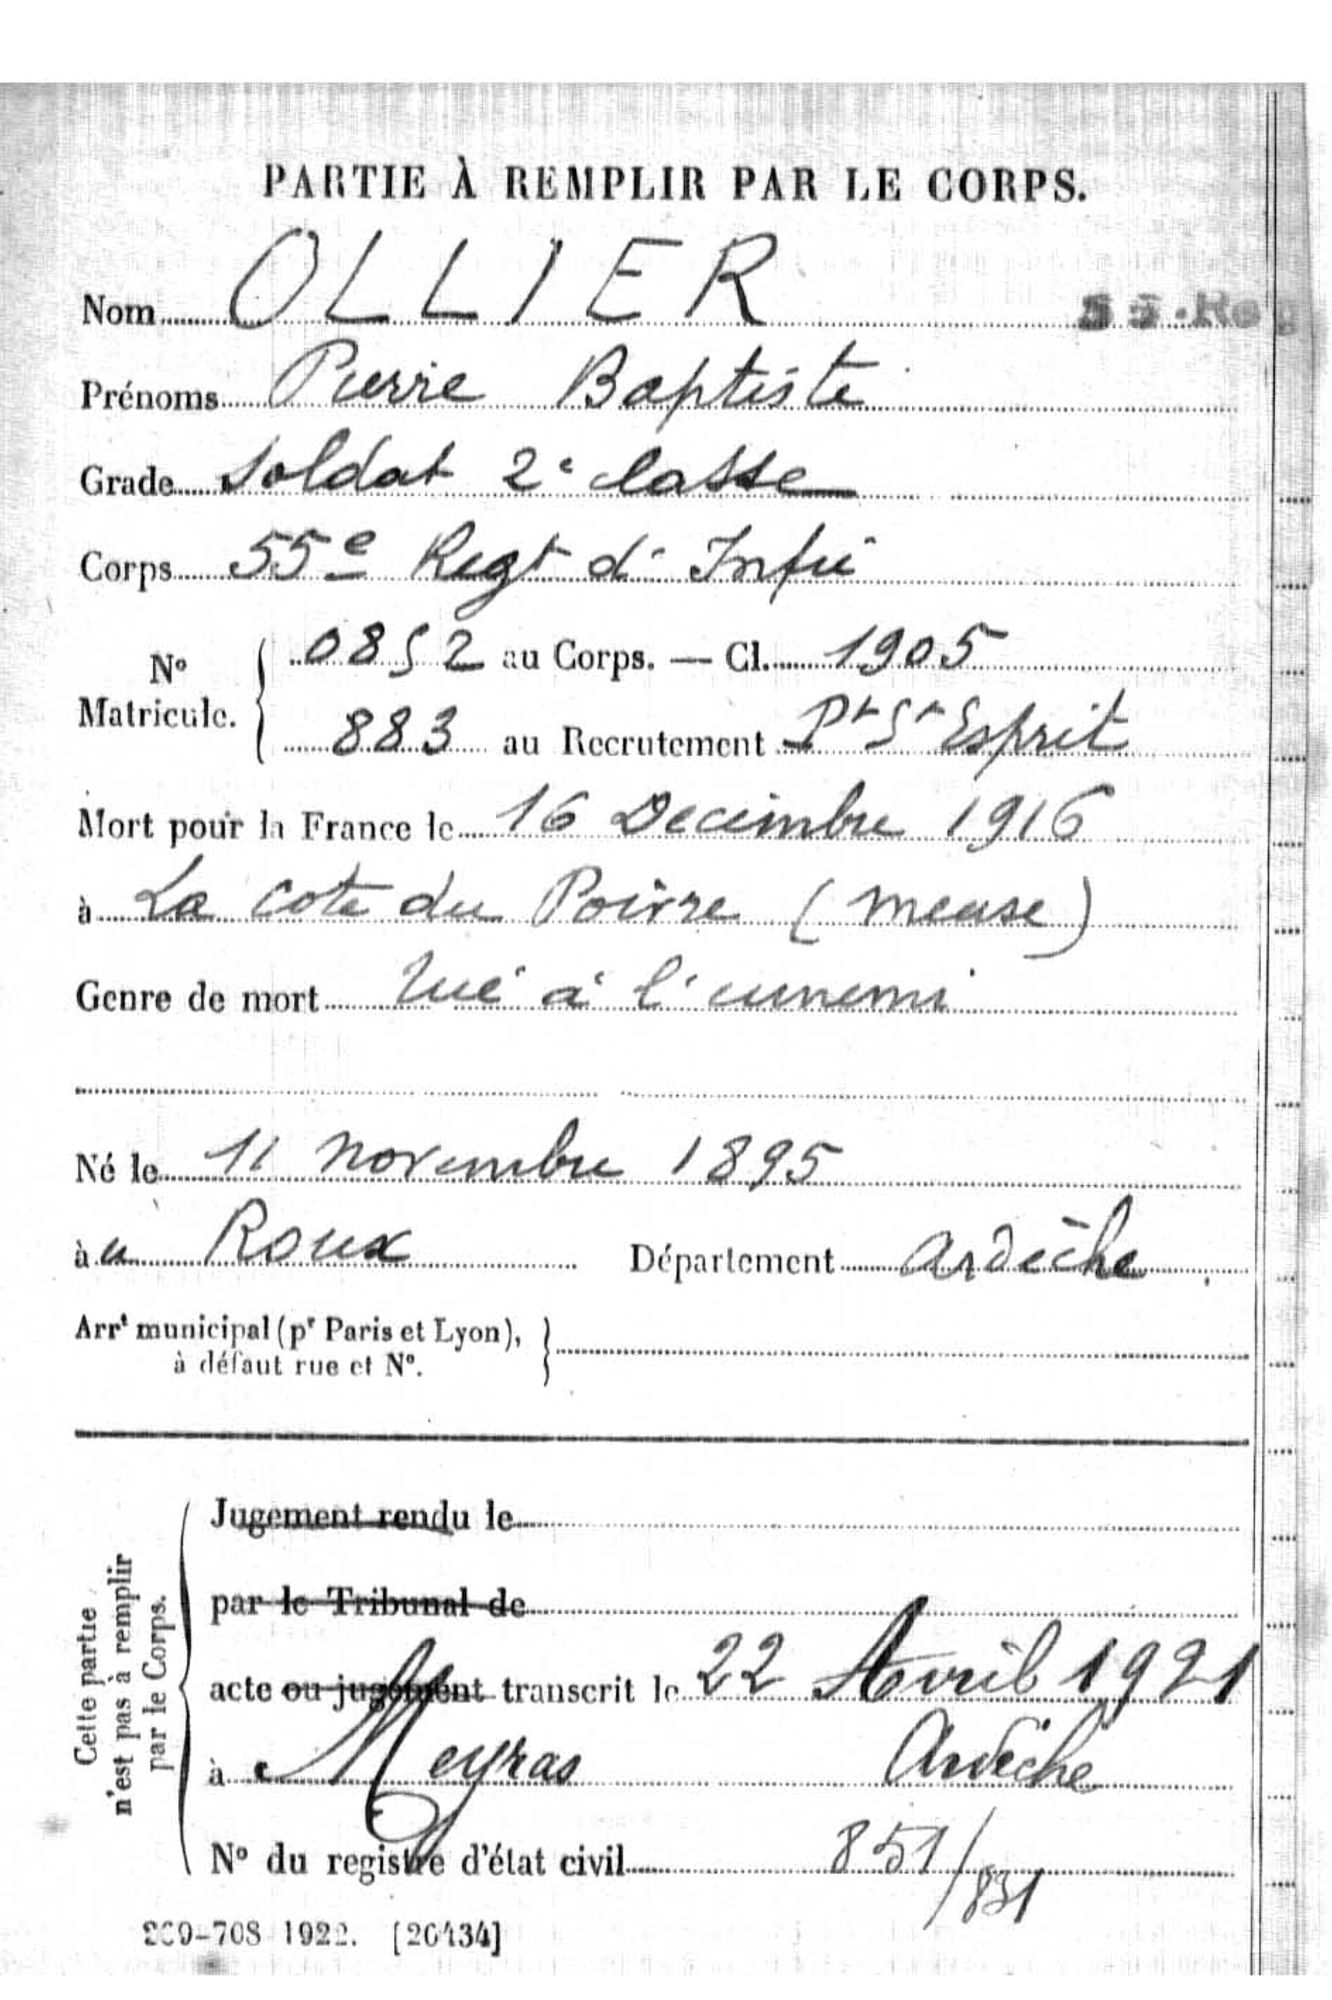 PARTIE À REMPLIR PAR LE CORPS.
Nom OLLIER
55.Reg
Prénoms Pierre Baptiste
Grade Soldat 2e classe
Corps 55e Regt d'Infie
No Matricule. 0852 au Corps. — Cl. 1905
883 au Recrutement Pt St Esprit
Mort pour la France le 16 Decembre 1916
à La cote du Poivre (Meuse)
Genre de mort tué à l'ennemi
Né le 11 novembre 1895
à Roux Département Ardèche
Arrt municipal (pr Paris et Lyon),
à défaut rue et No.
Cette partie
n'est pas à remplir
par le Corps.
Jugement rendu le
par le Tribunal de
acte ou jugement transcrit le 22 Avril 1921
à Meyras Ardèche
No du registre d'état civil 851/831
269-708 1922. [26434]